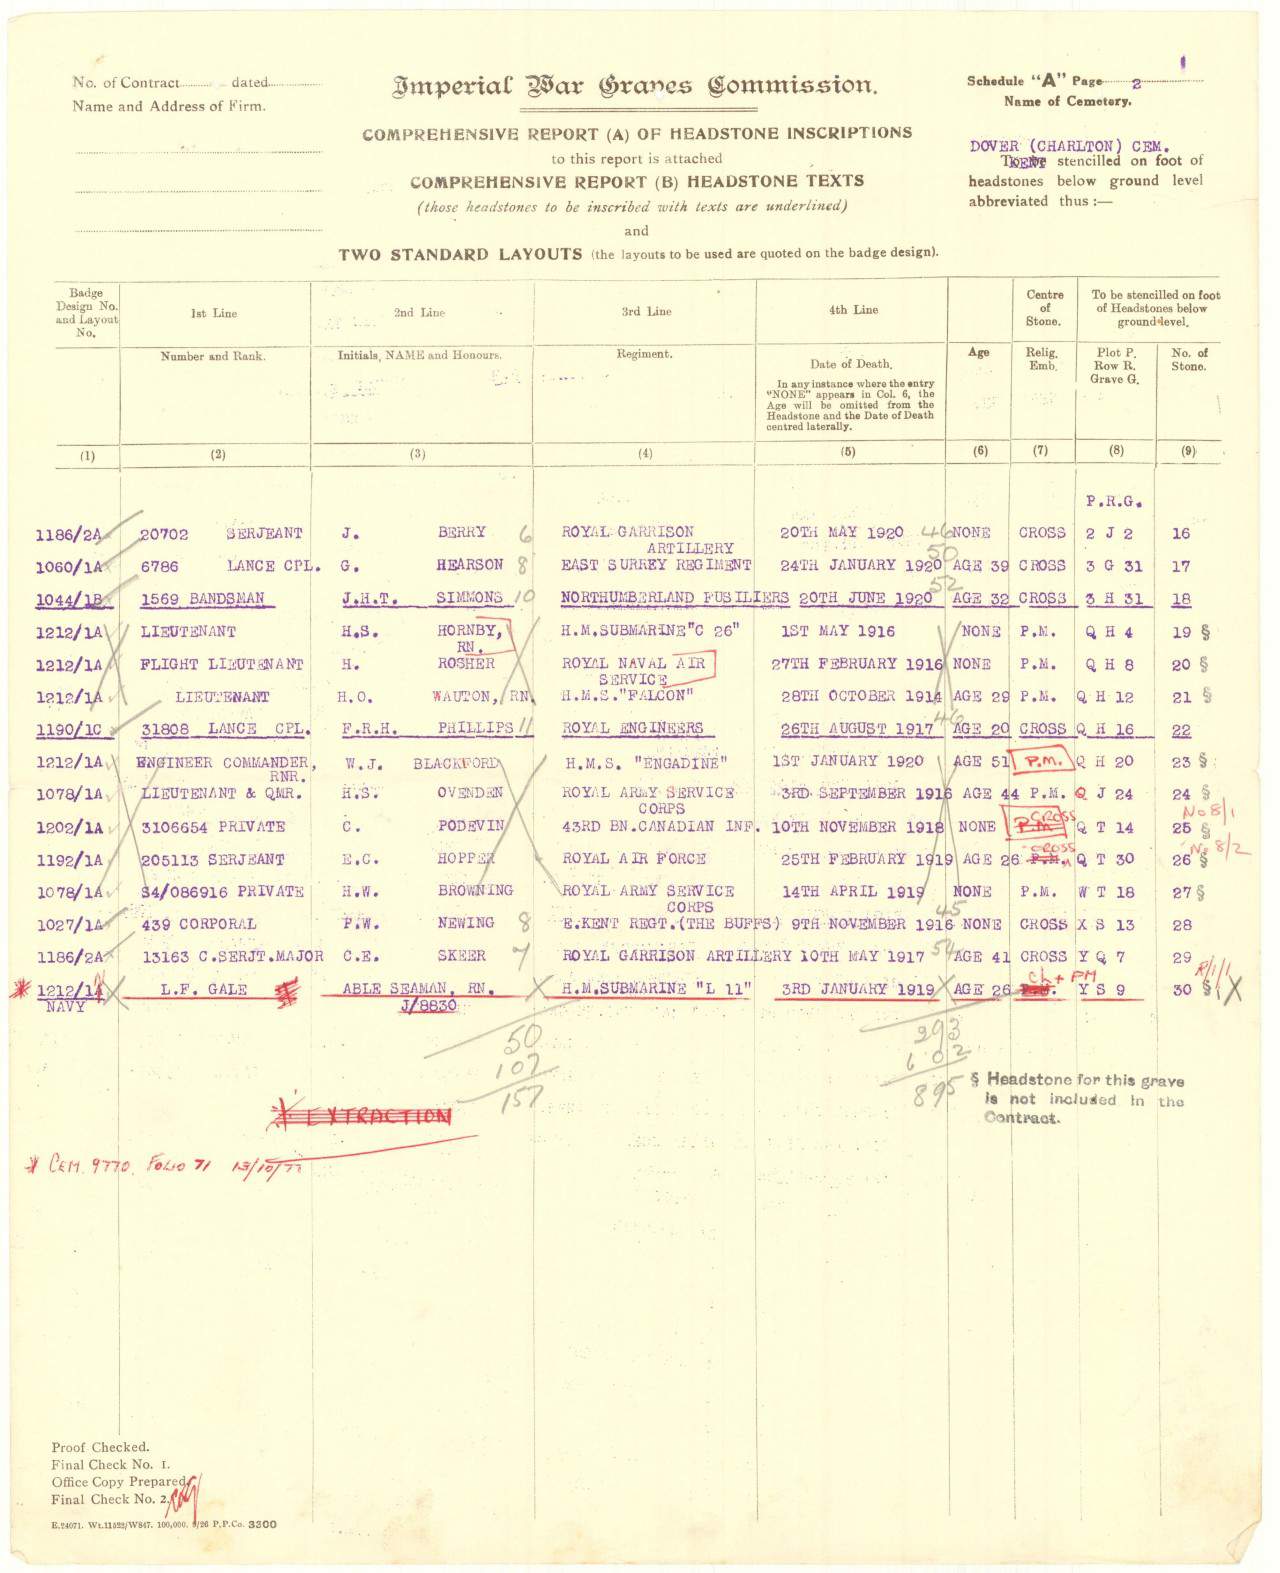 No. of Contract dated
Name and Address of Firm.
Imperial War Graves Commission.
COMPREHENSIVE REPORT (A) OF HEADSTONE INSCRIPTIONS
to this report is attached
COMPREHENSIVE REPORT (B) HEADSTONE TEXTS
(those headstones to be inscribed with texts are underlined)
and
TWO STANDARD LAYOUTS (the layouts to be used are quoted on the badge design).
Schedule "A" Page 2
Name of Cemetery.
DOVER (CHARLTON) CEM.
KENT
To be stencilled on foot of
headstones below ground level
abbreviated thus :—
Badge Design No. and Layout No. 1st Line 2nd Line 3rd Line 4th Line Centre of Stone. To be stencilled on foot of Headstones below ground level.
Number and Rank. Initials, NAME and Honours. Regiment. Date of Death. Age Relig. Emb. Plot P. Row R. Grave G. No. of Stone.
In any instance where the entry
"NONE" appears in Col. 6, the
Age will be omitted from the
Headstone and the Date of Death
centred laterally.
(1) (2) (3) (4) (5) (6) (7) (8) (9)
P.R.G.
1186/2A 20702 SERJEANT J. BERRY 6 ROYAL GARRISON 20TH MAY 1920 46 NONE CROSS 2 J 2 16
ARTILLERY 50
1060/1A 6786 LANCE CPL. G. HEARSON 8 EAST SURREY REGIMENT 24TH JANUARY 1920 AGE 39 CROSS 3 G 31 17
52
1044/1B 1569 BANDSMAN J.H.T. SIMMONS 10 NORTHUMBERLAND FUSILIERS 20TH JUNE 1920 AGE 32 CROSS 3 H 31 18
1212/1A LIEUTENANT H.S. HORNBY, H.M.SUBMARINE "C 26" 1ST MAY 1916 NONE P.M. Q H 4 19 §
RN.
1212/1A FLIGHT LIEUTENANT H. ROSHER ROYAL NAVAL AIR 27TH FEBRUARY 1916 NONE P.M. Q H 8 20 §
SERVICE
1212/1A LIEUTENANT H.O. WAUTON, RN. H.M.S. "FALCON" 28TH OCTOBER 1914 AGE 29 P.M. Q H 12 21 §
46
1190/1C 31808 LANCE CPL. F.R.H. PHILLIPS 11 ROYAL ENGINEERS 26TH AUGUST 1917 AGE 20 CROSS Q H 16 22
1212/1A ENGINEER COMMANDER, W.J. BLACKFORD H.M.S. "ENGADINE" 1ST JANUARY 1920 AGE 51 P.M. Q H 20 23 §
RNR.
1078/1A LIEUTENANT & QMR. H.S. OVENDEN ROYAL ARMY SERVICE 3RD SEPTEMBER 1916 AGE 44 P.M. Q J 24 24 §
CORPS
CROSS No 8/1
1202/1A 3106654 PRIVATE C. PODEVIN 43RD BN.CANADIAN INF. 10TH NOVEMBER 1918 NONE P.M. Q T 14 25 §
CROSS No 8/2
1192/1A 205113 SERJEANT E.C. HOPPER ROYAL AIR FORCE 25TH FEBRUARY 1919 AGE 26 P.M. Q T 30 26 §
1078/1A S4/086916 PRIVATE H.W. BROWNING ROYAL ARMY SERVICE 14TH APRIL 1919 NONE P.M. W T 18 27 §
CORPS 45
1027/1A 439 CORPORAL P.W. NEWING 8 E.KENT REGT.(THE BUFFS) 9TH NOVEMBER 1916 NONE CROSS X S 13 28
1186/2A 13163 C.SERJT.MAJOR C.E. SKEER 7 ROYAL GARRISON ARTILLERY 10TH MAY 1917 54 AGE 41 CROSS Y Q 7 29
Ch + PM R/1/1
1212/1A L.F. GALE ABLE SEAMAN, RN. H.M.SUBMARINE "L 11" 3RD JANUARY 1919 AGE 26 Y S 9 30 §
NAVY J/8830
50 293
107 602
157 895
§ Headstone for this grave
is not included in the
Contract.
EXTRACTION
CEM. 9770. FOLIO 71 13/10/77
Proof Checked.
Final Check No. 1.
Office Copy Prepared.
Final Check No. 2.
E.24071. Wt.11522/W847. 100,000. 8/26 P.P.Co. 3300